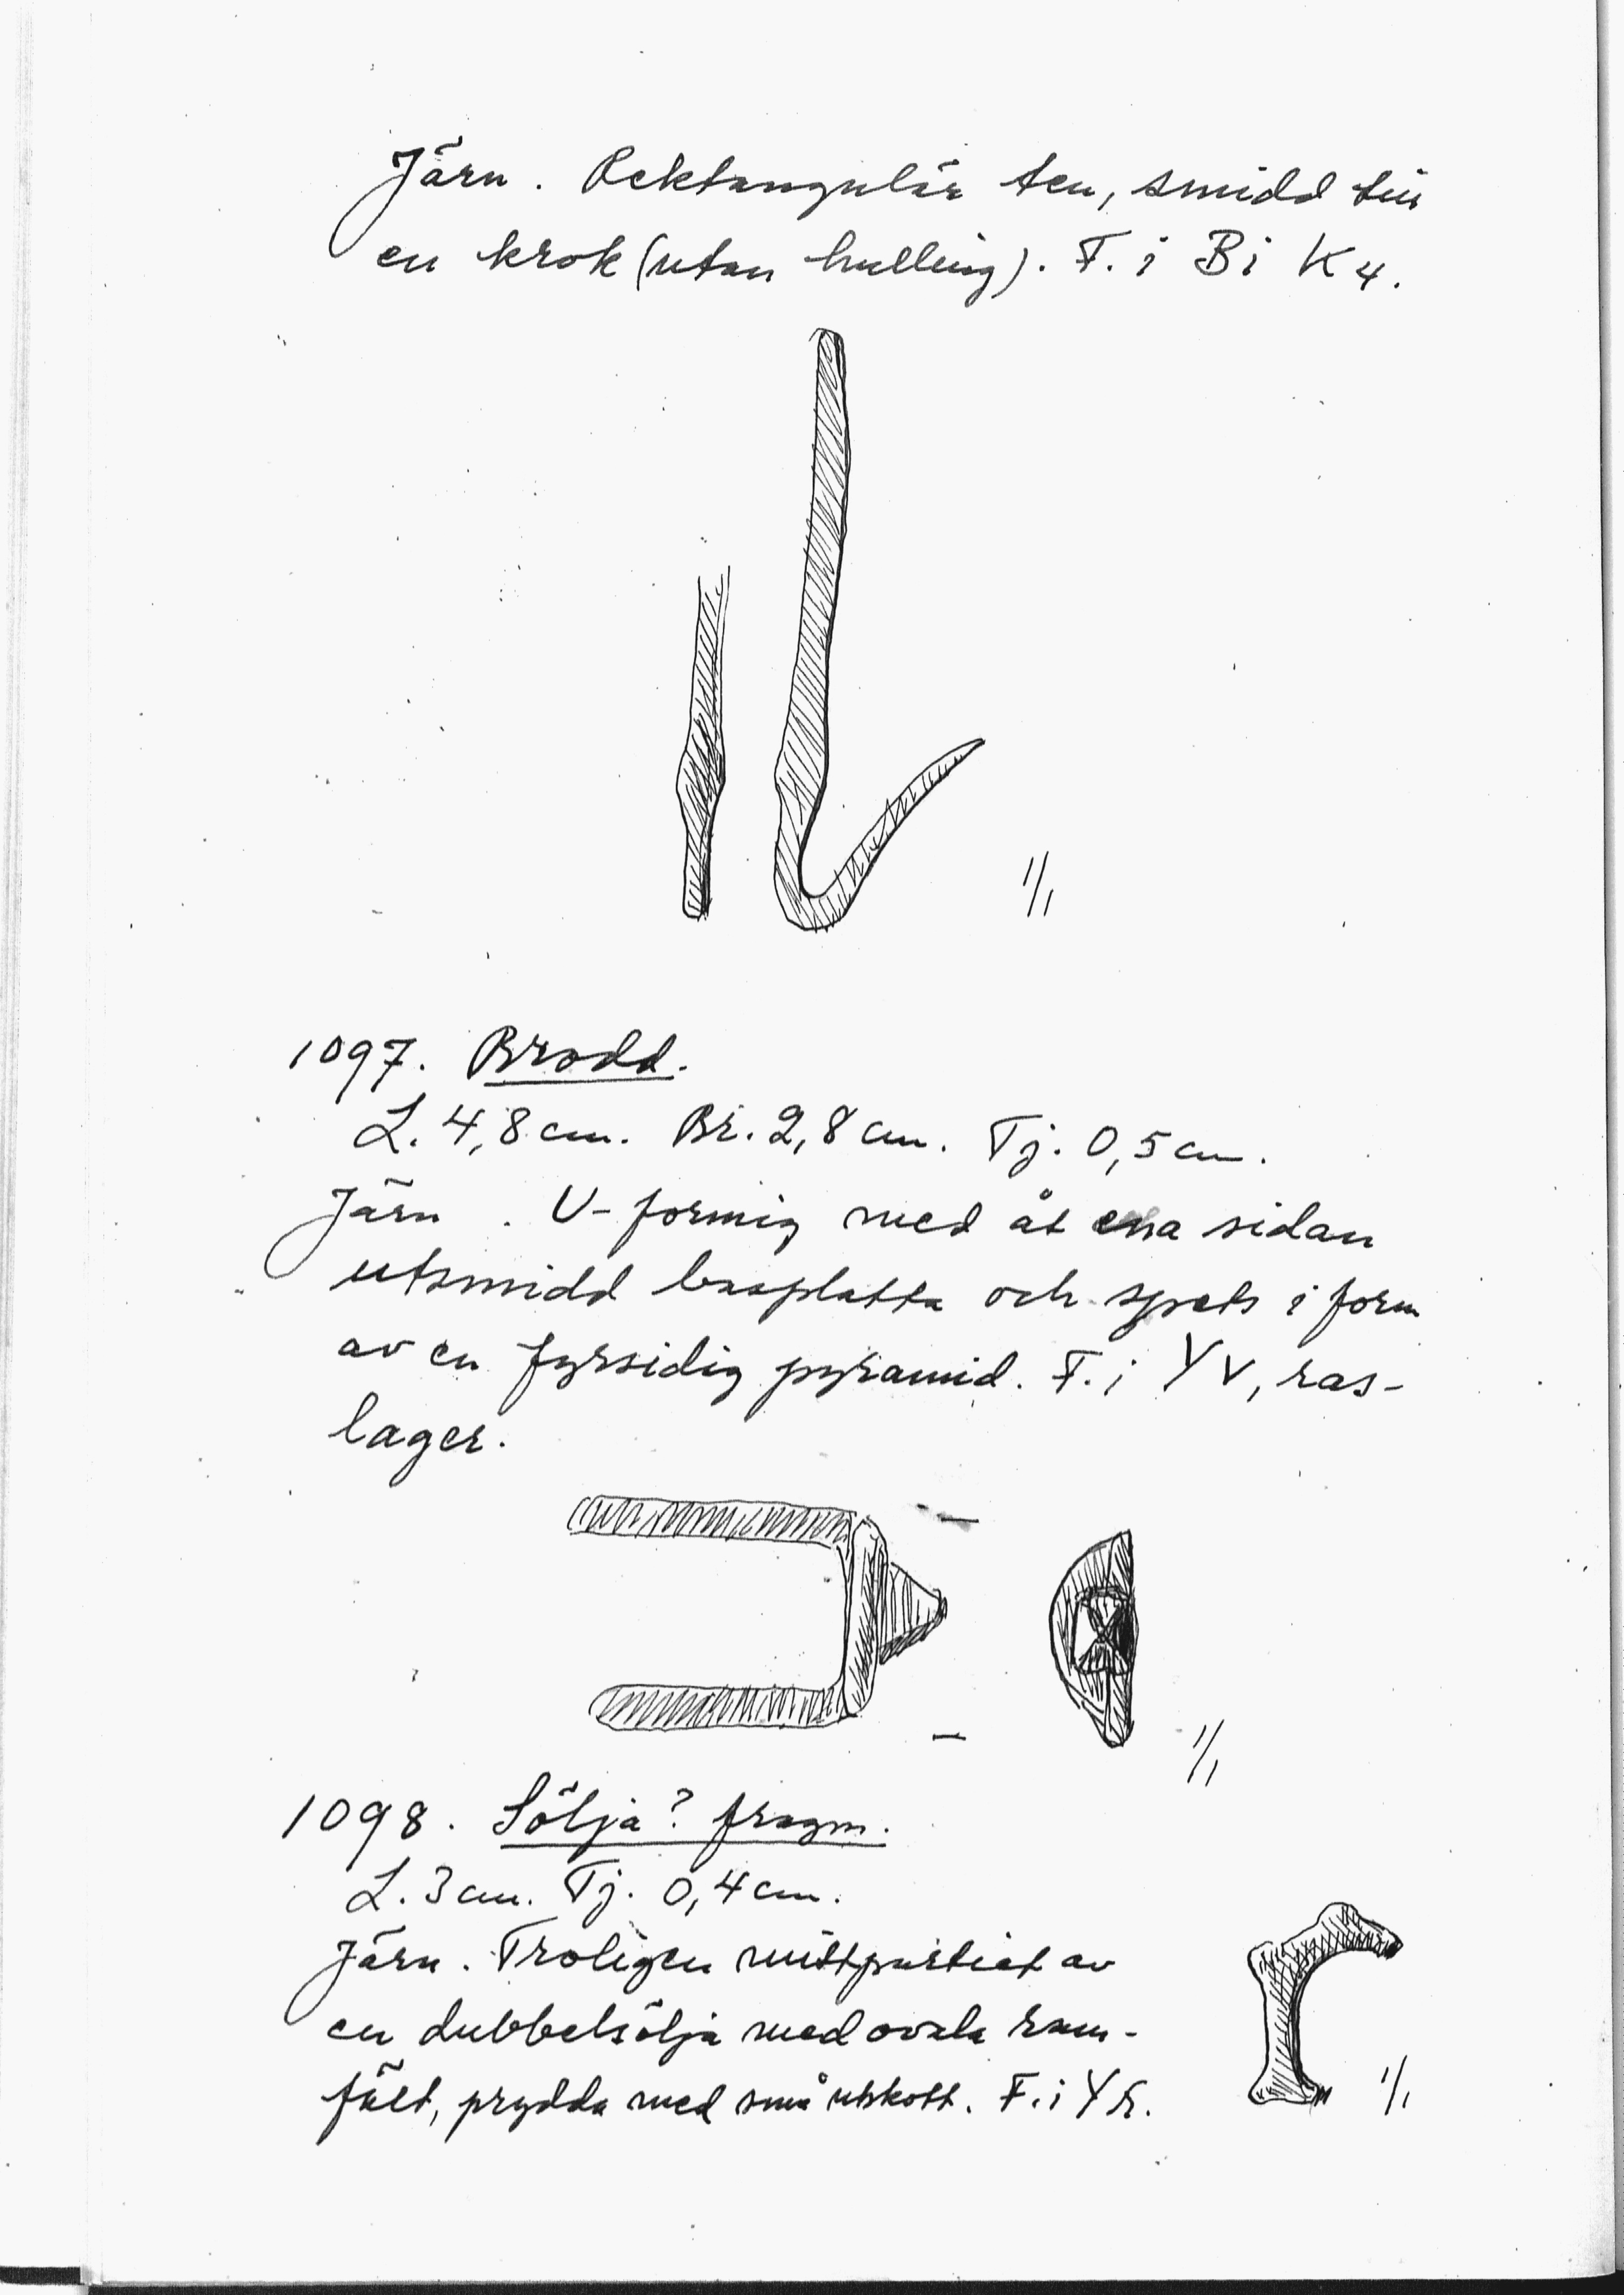 Järn. Rektangulär ten, smidd till
en krok (utan hulling). F. i Bi K4.
1/1
1097. Brodd.
L. 4,8 cm. Br. 2,8 cm. Tj. 0,5 cm.
Järn . U-formig med åt ena sidan
utsmidd basplatta och spets i form
av en fyrsidig pyramid. F. i YV, ras-
lager.
1/1
1098. Sölja? fragm.
L. 3 cm. Tj. 0,4 cm.
Järn. Troligen mittpartiet av
en dubbelsölja med ovala ram-
fält, prydda med små utskott. F. i
1/1